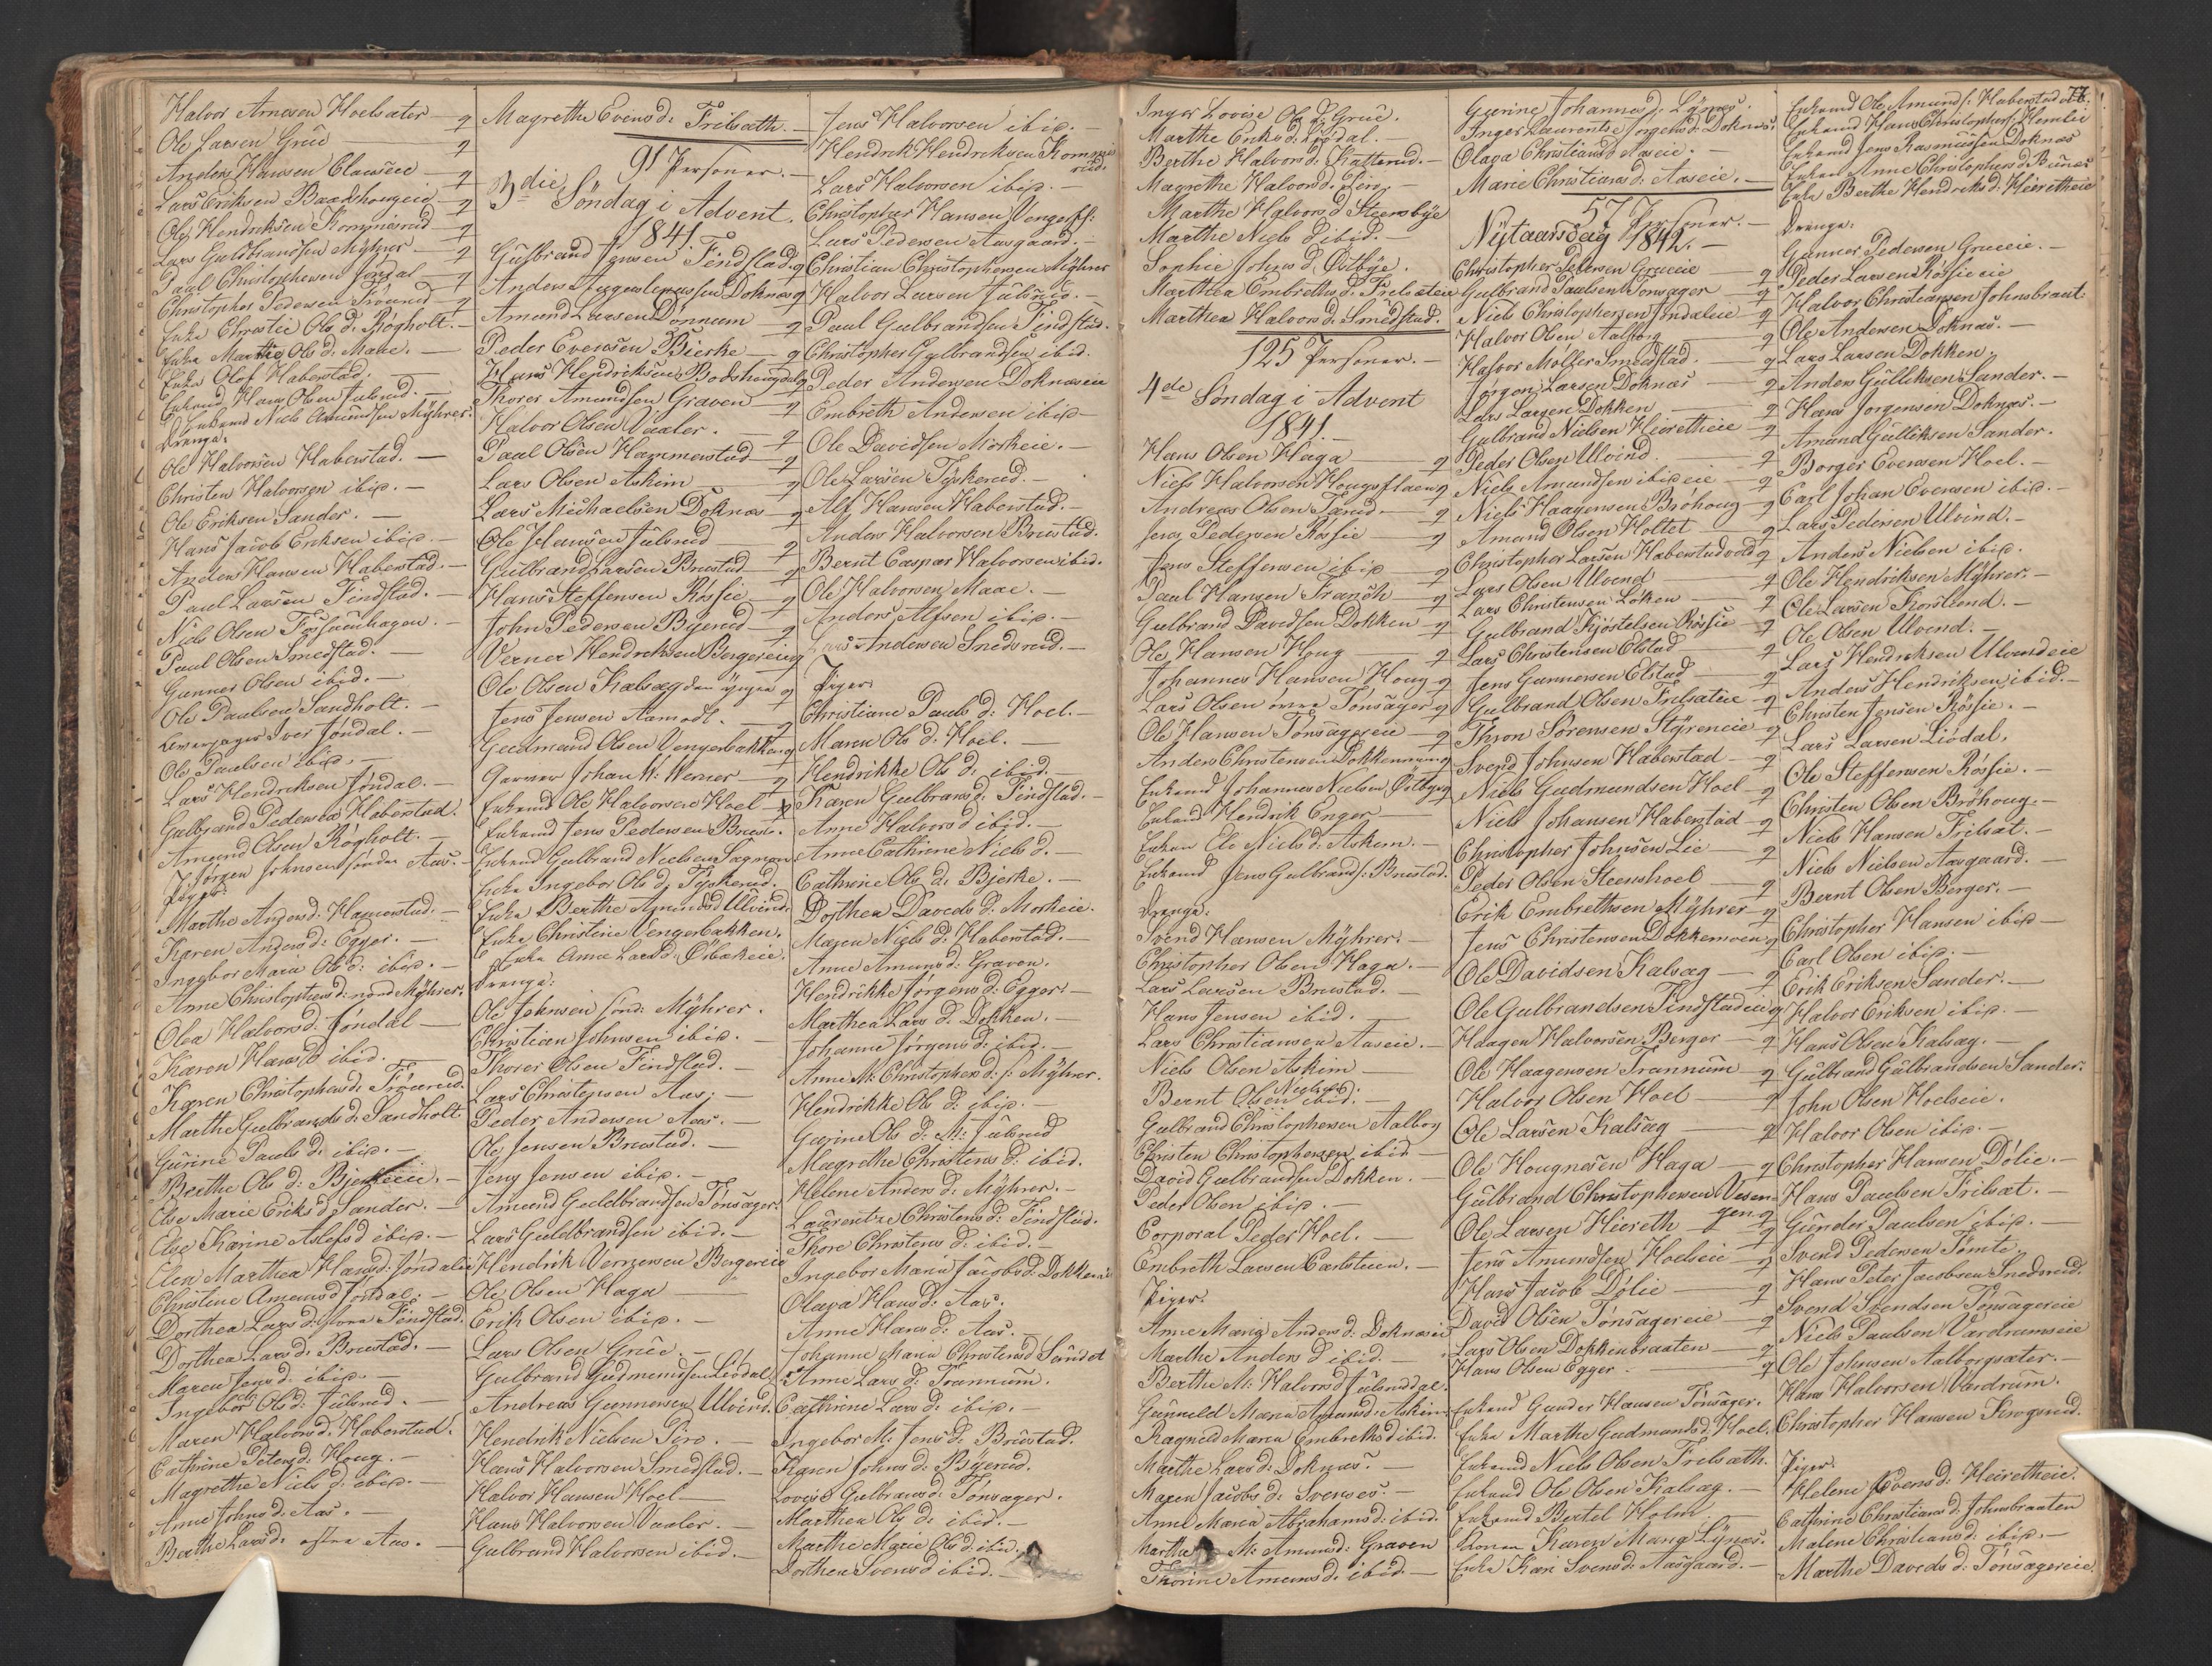 Halvor Arnesen Hoelsæter — g
Ole Larsen Grüe — g
Anders Hansen — g
Lars Eriksen Baadshougeie — g
Ole Hendriksen Kommisrud — g
Lars Guldbrandsen Myhrer — g
Paul Christophersen Jøndal — g
Christopher Pedersen — g
Enke Christie Ols d: Røgholt. —
Enke Marthe Ols d: Maae. —
Enke Olof Haberstad. —
Enkemd Hans Olsen Julsrud. —
Enkemd Niels Amundsen Myhrer.
Drenge.
Ole Halvorsen Haberstad. —
Christen Halvorsen ibid. —
Ole Eriksen Sander. —
Hans Jacob Eriksen ibid. —
Anders Hansen Haberstad. —
Paul Larsen Findstad. —
Niels Olsen
Paul Olsen Smedstad. —
Gunner Olsen ibid. —
Ole Paulsen Sandholt. —
Iver Jøndal. —
Ole Paulsen ibid. —
Lars Hendriksen Jøndal. —
Gulbrand Pedersen Haberstad.
Amund Olsen Røgholt. —
Jørgen Johnsen søndre Aas. —
Piger:
Marthe Anders d: Hamerstad. —
Karen Anders d: Egger. —
Ingebor Maria Ols d: ibid. —
Anne Christophers d: nord Myhrer.
Olea Halvors d: Jøndal —
Karen Hans d ibid. —
Karen Christophers d:
Marthe Gulbrands d: Sandholt
Gurine Pauls d: ibid. —
Berthe Ols d: Bjerkeeie. —
Else Marie Eriks d Sander. —
Else Karine Aslefs d ibid. —
Elen Marthea Hans d: Jøndaleie
Christine Amunds d Jøndal. —
Dorthea Lars d: store Findstad.
Dorthea Lars d: Brustad. —
Maren Jens d: ibid. —
Ingebor Ols d: Julsrud. —
Maren Halvors d: Haberstad.
Cathrine Peters d: Houg. —
Magrethe Niels d: ibid. —
Anne Johns d: Aas. —
Berthe Lars d: østre Aas. —
Magrethe Evens d: Frilsæth. —
91 Personer. —
3die Søndag i Advent.
1841.
Gulbrand Jensen Findstad. g
Anders Doknæs g
Amund Larsen Donnum — g
Peder Evensen Bjerke — g
Hans Hendriksen Bodshaugdal g
Thorer Amundsen Graven — g
Halvor Olsen Vaaler. — g
Paul Olsen Hammerstad — g
Lars Olsen Askim — g
Lars Michaelsen Doknæs — g
Ole Hansen Julsrud — g
Gulbrand Larsen Brustad — g
Hans Steffensen Røssie — g
John Pedersen Byerud — g
Verner Hendriksen Bergereie g
Ole Olsen Kalsæg den yngre g
Jens Jensen Aamodt. — g
Gudmund Olsen Vengerbakken g
Garver Johan W: Werner — g
Enkemd Ole Halvorsen Hoel —
Enkemd Jens Pedersen Brust. —
Enkemd Gulbrand Nielsen Sagmoen
Enke Ingebor Ols d: Tyskerud.
Enke Berthe Amunds d Ulvind.
Enke Christine Vengerbakken.
Enke Anne Lars d:
Drenge:
Ole Johnsen sønd: Myhrer.
Christian Johnsen ibid. —
Thorer Olsen Findstad. —
Lars Christensen Aas. —
Peder Andersen Aas. —
Ole Jensen Brustad. —
Jens Jensen ibid. —
Amund Guldbrandsen Tønsager.
Lars Guldbrandsen ibid. —
Hendrik Vernersen Bergereie
Ole Olsen Haga —
Erik Olsen ibid. —
Lars Olsen Grüe. —
Gulbrand Gudmundsen Liødal.
Andreas Gunnersen Ulvind.
Hendrik Nielsen —
Hans Halvorsen Smedstad. —
Halvor Hansen Hoel —
Hans Halvorsen Vaaler. —
Gulbrand Halvorsen ibid. —
Jens Halvorsen ibid. —
Hendrik Hendriksen Kommisrud.
Lars Halvorsen ibid. —
Christopher Hansen
Lars Pedersen Aasgaard. —
Christian Christophersen Myhrer
Halvor Larsen Julsrud. —
Paul Gulbrandsen Findstad.
Christopher Gulbrandsen ibid.
Peder Andersen Doknæseie
Embreth Andersen ibid —
Ole Davidsen Morkeie. —
Ole Larsen Tyskerud. —
Alf Hansen Haberstad. —
Anders Halvorsen Brustad.
Bernt Caspar Halvorsen ibid.
Ole Halvorsen Maae. —
Anders Alfsen ibid. —
Lars Andersen Snedsrud. —
Piger
Christiane Pauls d: Hoel. —
Maren Ols d: Hoel. —
Hendrikke Ols d: ibid. —
Karen Gulbrands d: Findstad. —
Anne Halvors d ibid. —
Anne Cathrine Niels d. —
Cathrine Ols d: Bjerke. —
Dorthea Davids d: Morkeie.
Maren Niels d: Haberstad. —
Anne Amunds d: Graven.
Hendrikke Jørgens d: Egger. —
Marthea Lars d. Dokken. —
Johanne Jørgens d: ibid. —
Anne M: Christophers d: s: Myhrer.
Hendrikke Ols d: ibid. —
Gurine Ols d: M: Julsrud
Magrethe Christens d: ibid.
Helene Anders d: Myhrer. —
Laurentze Christens d: Findstad.
Thore Christens d: ibid. —
Ingebor Maria Jacobs d: Dokken
Olava Hans d: Aas.
Anne Hans d: Aas. —
Johanne Maria Christens d
Anne Lars d: Trannum.
Cathrine Lars d: ibid. —
Ingebor M: Jens d: Brustad.
Karen Johns d: Byerud.
Lovise Gulbrands d: Tønsager.
Marthea Ols d: ibid. —
Marthe Marie Ols d: ibid.
Dorthea Svens d ibid. —
Inger Lovise Ols d: Grue.
Marthe Eriks d: Liødal.
Berthe Halvors d: Katterud. —
Magrethe Halvors d: —
Marthe Halvors d Steensbye
Marthe Niels d ibid. —
Sophie Johns d, Østbye.
Marthea Embreths d: Frilsæteie
Marthea Halvors d: Smedstad.
125 Personer. —
4de Søndag i Advent
1841. —
Hans Olsen Haga — g
Niels Halvorsen g
Andreas Olsen — g
Jens Pedersen Røssie — g
Jens Steffensen ibid — g
Paul Hansen — g
Gulbrand Davidsen Dokken — g
Ole Hansen Houg — g
Johannes Hansen Houg — g
Lars Olsen øvre Tønsager g
Ole Hansen Tønsagereie — g
Anders Christensen g
Enkemd Johannes Nielsen Østbye g
Enkemd Hendrik Enger —
Enken Ele Niels d: Askem. —
Enkemd Jens Gulbrands: Brustad.
Drenge:
Svend Hansen Myhrer. —
Christopher Olsen Haga. —
Lars Larsen Brustad. —
Hans Jensen ibid. —
Lars Christiansen Aaseie. —
Niels Olsen Askim —
Bernt Olsen ibid. —
Gulbrand Christophersen Aalborg
Christen Christophersen ibid —
David Gulbrandsen Dokken. —
Peder Olsen ibid. —
Corporal Peder Hoel. —
Embreth Larsen Carlsteen. —
Piger.
Anne Maria Anders d: Doknæseie
Marthe Anders d ibid. —
Berthe M: Halvors d Julsruddal.
Gunneld Maria Amunds d: Askim
Ragneld Maria Embreths d ibid.
Marthe Lars d: Doknæs. —
Maren Jacobs d: —
Anne Maria Abrahams d: ibid.
Marthe M: Amunds d: Graven
Thorine Amunds d: ibid —
Gurine Johannes d: Lynæs.
Inger Laurentse Jørgens d: Doknæs.
Olava Christians d Aaseie. —
Marie Christians d: Aaseie. —
57 Personer. —
Nytaarsdag 1842. —
Christopher Pedersen Grueeie — g
Gulbrand Paulsen Tønsager — g
Niels Christophersen Jøndaleie — g
Halvor Olsen Aalborg — g
Halvor Møller Smedstad. — g
Jørgen Larsen Doknæs — g
Lars Larsen Dokken — g
Gulbrand Nielsen Hieretheie — g
Peder Olsen Ulvind. — g
Niels Amundsen ibid eie — g
Niels Haagensen Brøhoug — g
Amund Olsen Holtet — g
Christopher Larsen g
Lars Olsen Ulvend — g
Lars Christensen Løken — g
Gulbrand Kjøstelsen Røssie — g
Lars Christensen Elstad — g
Jens Gunnersen Elstad — g
Gulbrand Olsen Frilsæteie — g
Thron Sørensen Styreneie — g
Svend Johnsen Haberstad — g
Niels Gudmundsen Hoel — g
Niels Johansen Haberstad — g
Christopher Johnsen Lie — g
Peder Olsen Steenshoel — g
Erik Embrethsen Myhrer — g
Jens Christensen Dokkemoen g
Ole Davidsen Kalsæg — g
Ole Gulbrandsen Findstadeie g
Haagen Halvorsen Berger — g
Ole Haagensen Trannum — g
Halvor Olsen Hoel — g
Ole Larsen Kalsæg — g
Ole Hougnesen Haga — g
Gulbrand Christophersen
Ole Larsen Hiereth — g
Jens Amundsen Hoelseie — g
Hans Jacob Dølie — g
David Olsen Tønsagereie — g
Lars Olsen Dokkenbraaten — g
Hans Olsen Egger — g
Enkemd Gunder Hansen Tønsager.
Enke Marthe Gudmunds d: Hoel.
Enkemd Niels Olsen Frilsæth.
Enkemd Ole Olsen Kalsæg. —
Enkemd Bertel Holm —
Konen Karen Mang Lynæs.
Enke Kari Svens d: Aasgaard. —
77.
Enkemd Ole Amunds: Haberstad
Enkemd Hans Christophers:
Enkemd Jens Rasmussen Doknæs
Enken Anne Christophers d:
Enke Berthe Hendriks d: Hieretheie
Drenge:
Gunner Pedersen Grueeie. —
Peder Larsen Røssieeie
Halvor Christiansen Johnsbraat:
Ole Andersen Doknæs. —
Lars Larsen Dokken. —
Anders Gulliksen Sander. —
Hans Jørgensen Doknæs. —
Amund Gulliksen Sander.
Borger Evensen Hoel. —
Carl Johan Evensen ibid. —
Lars Pedersen Ulvind. —
Anders Nielsen ibid.
Ole Hendriksen Myhrer. —
Ole Larsen —
Ole Olsen Ulvend. —
Lars Hendriksen Ulvendeie
Anders Hendriksen ibid. —
Christen Jensen Røssie. —
Lars Larsen Liødal.
Ole Steffensen Røssie. —
Christen Olsen Brøhoug. —
Niels Hansen Frilsæt. —
Niels Nielsen Aasgaard. —
Bernt Olsen Berger. —
Christopher Hansen ibid —
Carl Olsen ibid. —
Erik Eriksen Sander. —
Halvor Eriksen ibid. —
Hans Olsen Kalsæg. —
Gulbrand Gulbrandsen Sander.
John Olsen Hoelseie.
Halvor Olsen ibid. —
Christopher Hansen Dølie. —
Hans Paulsen Frilsæt. —
Gunder Paulsen ibid. —
Svend Pedersen Tomte
Hans Peter Jacobsen Snedsrud.
Svend Svendsen Tønsagereie
Niels Paulsen Vardrumseie
Ole Johnsen Aalborgsæter. —
Hans Halvorsen Vardrum.
Christopher Hansen Krogsrud.
Piger.
Helene Evens d: Hieretheie.
Cathrine Christians d: Johnsbraaten
Malene Christians d: ibid. —
Marthe Davids d: Tønsagereie.